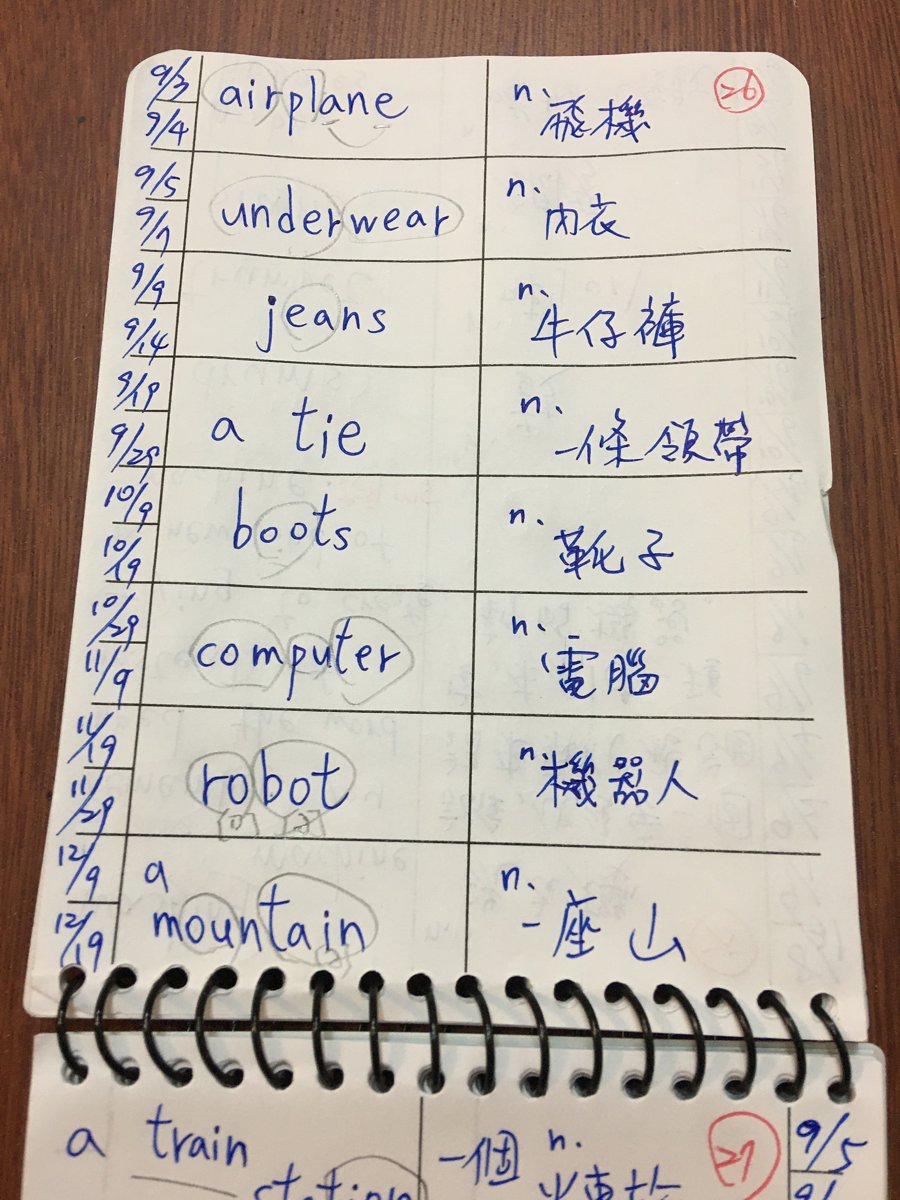 9/3 airplane n. 飛機 26
9/4
9/5 underwear n. 內衣
9/7
9/9 jeans n. 牛仔褲
9/14
9/19 a tie n. 一條領帶
9/29
10/9 boots n. 靴子
10/19
10/29 computer n. 一電腦
11/9
11/19 robot n. 機器人
11/29
12/9 a mountain n. 一座山
12/19
a train 一個 n. 27 9/5
station